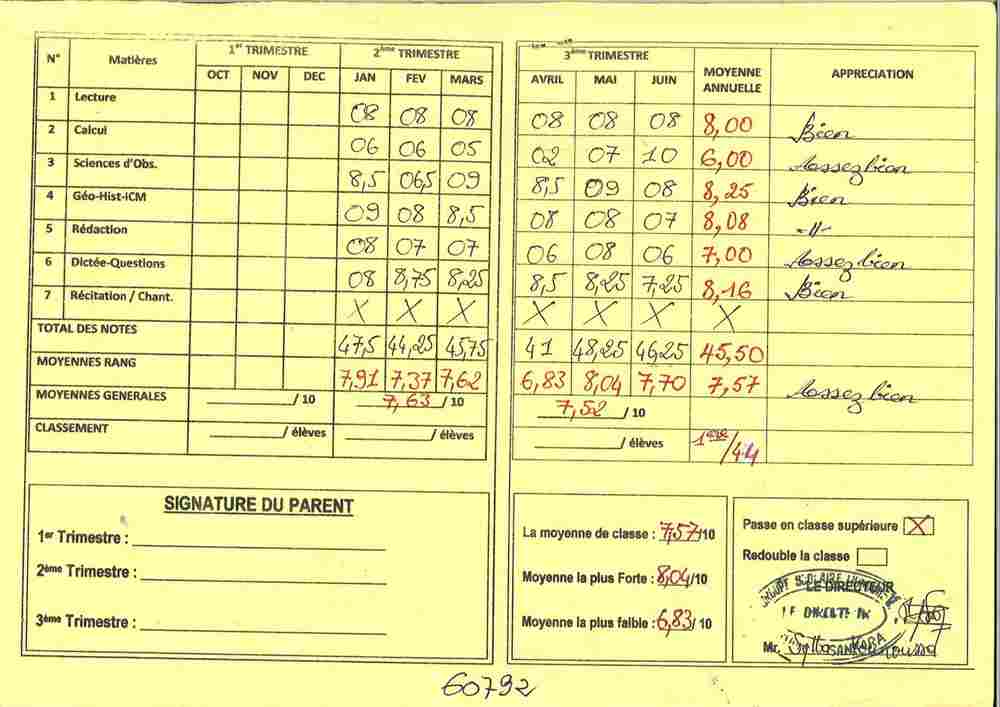 N° Matières 1er TRIMESTRE 2ème TRIMESTRE 3ème TRIMESTRE MOYENNE ANNUELLE APPRECIATION
OCT NOV DEC JAN FEV MARS AVRIL MAI JUIN
1 Lecture 08 08 08 08 08 08 8,00 Bien
2 Calcul 06 06 05 02 07 10 6,00 Assez bien
3 Sciences d'Obs. 8,5 06,5 09 8,5 09 08 8,25 Bien
4 Géo-Hist-iCM 09 08 8,5 08 08 07 8,08 -//-
5 Rédaction 08 07 07 06 08 06 7,00 Assez bien
6 Dictée-Questions 08 8,75 8,25 8,5 8,25 7,25 8,16 Bien
7 Récitation / Chant. X X X X X X X
TOTAL DES NOTES 47,5 44,25 45,75 41 48,25 46,25 45,50
MOYENNES RANG 7,91 7,37 7,62 6,83 8,04 7,70 7,57 Assez bien
MOYENNES GENERALES / 10 7,63 / 10 7,52 / 10
CLASSEMENT / élèves / élèves / élèves 1ère/44
SIGNATURE DU PARENT
1er Trimestre :
2ème Trimestre :
3ème Trimestre :
La moyenne de classe : 7,57/10
Moyenne la plus Forte : 8,04/10
Moyenne la plus faible : 6,83/ 10
Passe en classe supérieure X
Redouble la classe
LE DIRECTEUR
Mr. Sylla
60792